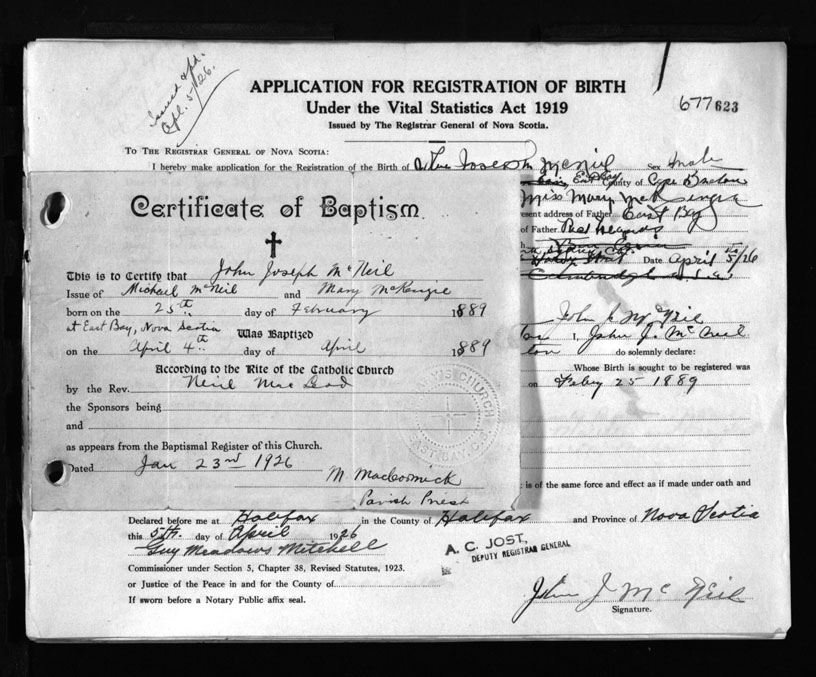 Apl. 5/26.
APPLICATION FOR REGISTRATION OF BIRTH
Under the Vital Statistics Act 1919
Issued by The Registrar General of Nova Scotia.
677 623
To The Registrar General of Nova Scotia:
I hereby make application for the Registration of the Birth of John Joseph McNeil Sex Male
East Bay County of Cape Breton
Certificate of Baptism
Miss Mary McKenzie
resent address of Father East Bay
of Father
This is to Certify that John Joseph McNeil
Date April 5th/26
Issue of Michael McNeil and Mary McKenzie
born on the 25th day of February 1889
John J McNeil
at East Bay, Nova Scotia Was Baptized
ton I, John J. McNeil
on the April 4th day of April 1889
ton do solemnly declare:
According to the Rite of the Catholic Church
Whose Birth is sought to be registered was
by the Rev. Neil MacLeod
on Feby 25 1889
the Sponsors being
and
as appears from the Baptismal Register of this Church.
Dated Jan 23rd 1926
M. MacCormick
Parish Priest
t is of the same force and effect as if made under oath and
Declared before me at Halifax in the County of Halifax and Province of Nova Scotia
this 5th. day of April 1926
Guy Meadows Mitchell
A. C. JOST,
DEPUTY REGISTRAR GENERAL
Commissioner under Section 5, Chapter 38, Revised Statutes, 1923.
or Justice of the Peace in and for the County of
If sworn before a Notary Public affix seal.
John J McNeil
Signature.